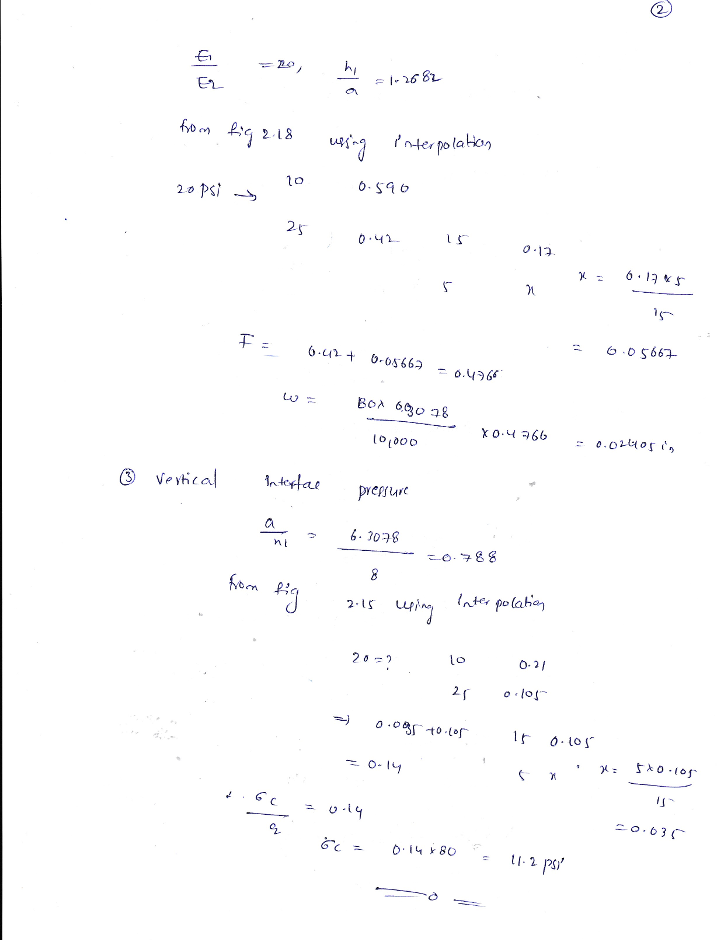 ②
E1/E2 = 20, h1/a = 1.2682
from fig 2.18 using interpolation
20 psi → 10 0.590
25 0.42 15 0.17
5 x x = 0.17 x 5 / 15
= 0.05667
F = 0.42 + 0.05667 = 0.4766
w = 80 x 6.3078 / 10,000 x 0.4766 = 0.02405 in
③ vertical Interfae pressure
a/h1 = 6.3078 / 8 = 0.788
from fig 2.15 using Interpolation
20 = ? 10 0.21
25 0.105
⇒ 0.035 + 0.105 15 0.105
= 0.14 5 x x = 5 x 0.105 / 15
= 0.035
σc/q = 0.14
σc = 0.14 x 80 = 11.2 psi